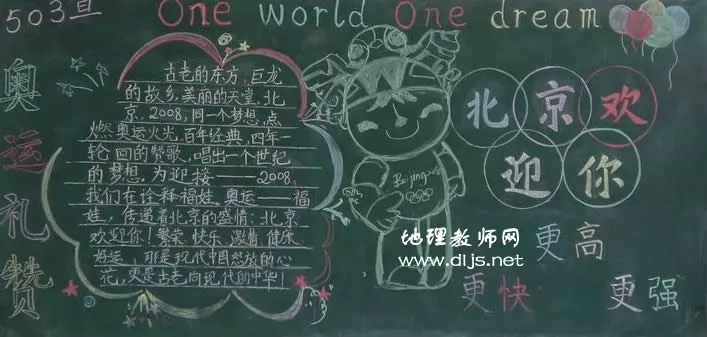 503宣
One world One dream
奥运礼赞
古老的东方,巨龙
的故乡,美丽的天堂,北
京,2008,同一个梦想,点
燃奥运火光,百年经典,四年一
轮回的赞歌,唱出一个世纪
的梦想。为迎接——2008,
我们在诠释福娃。奥运——福
娃,传递着北京的盛情:北京
欢迎你!繁荣、快乐、激情、健康、
好运,那是现代中国怒放的心
花,更是古老向现代的中华!
Beijing
北京欢
迎你
地理教师网
www.dljs.net
更高
更快
更强